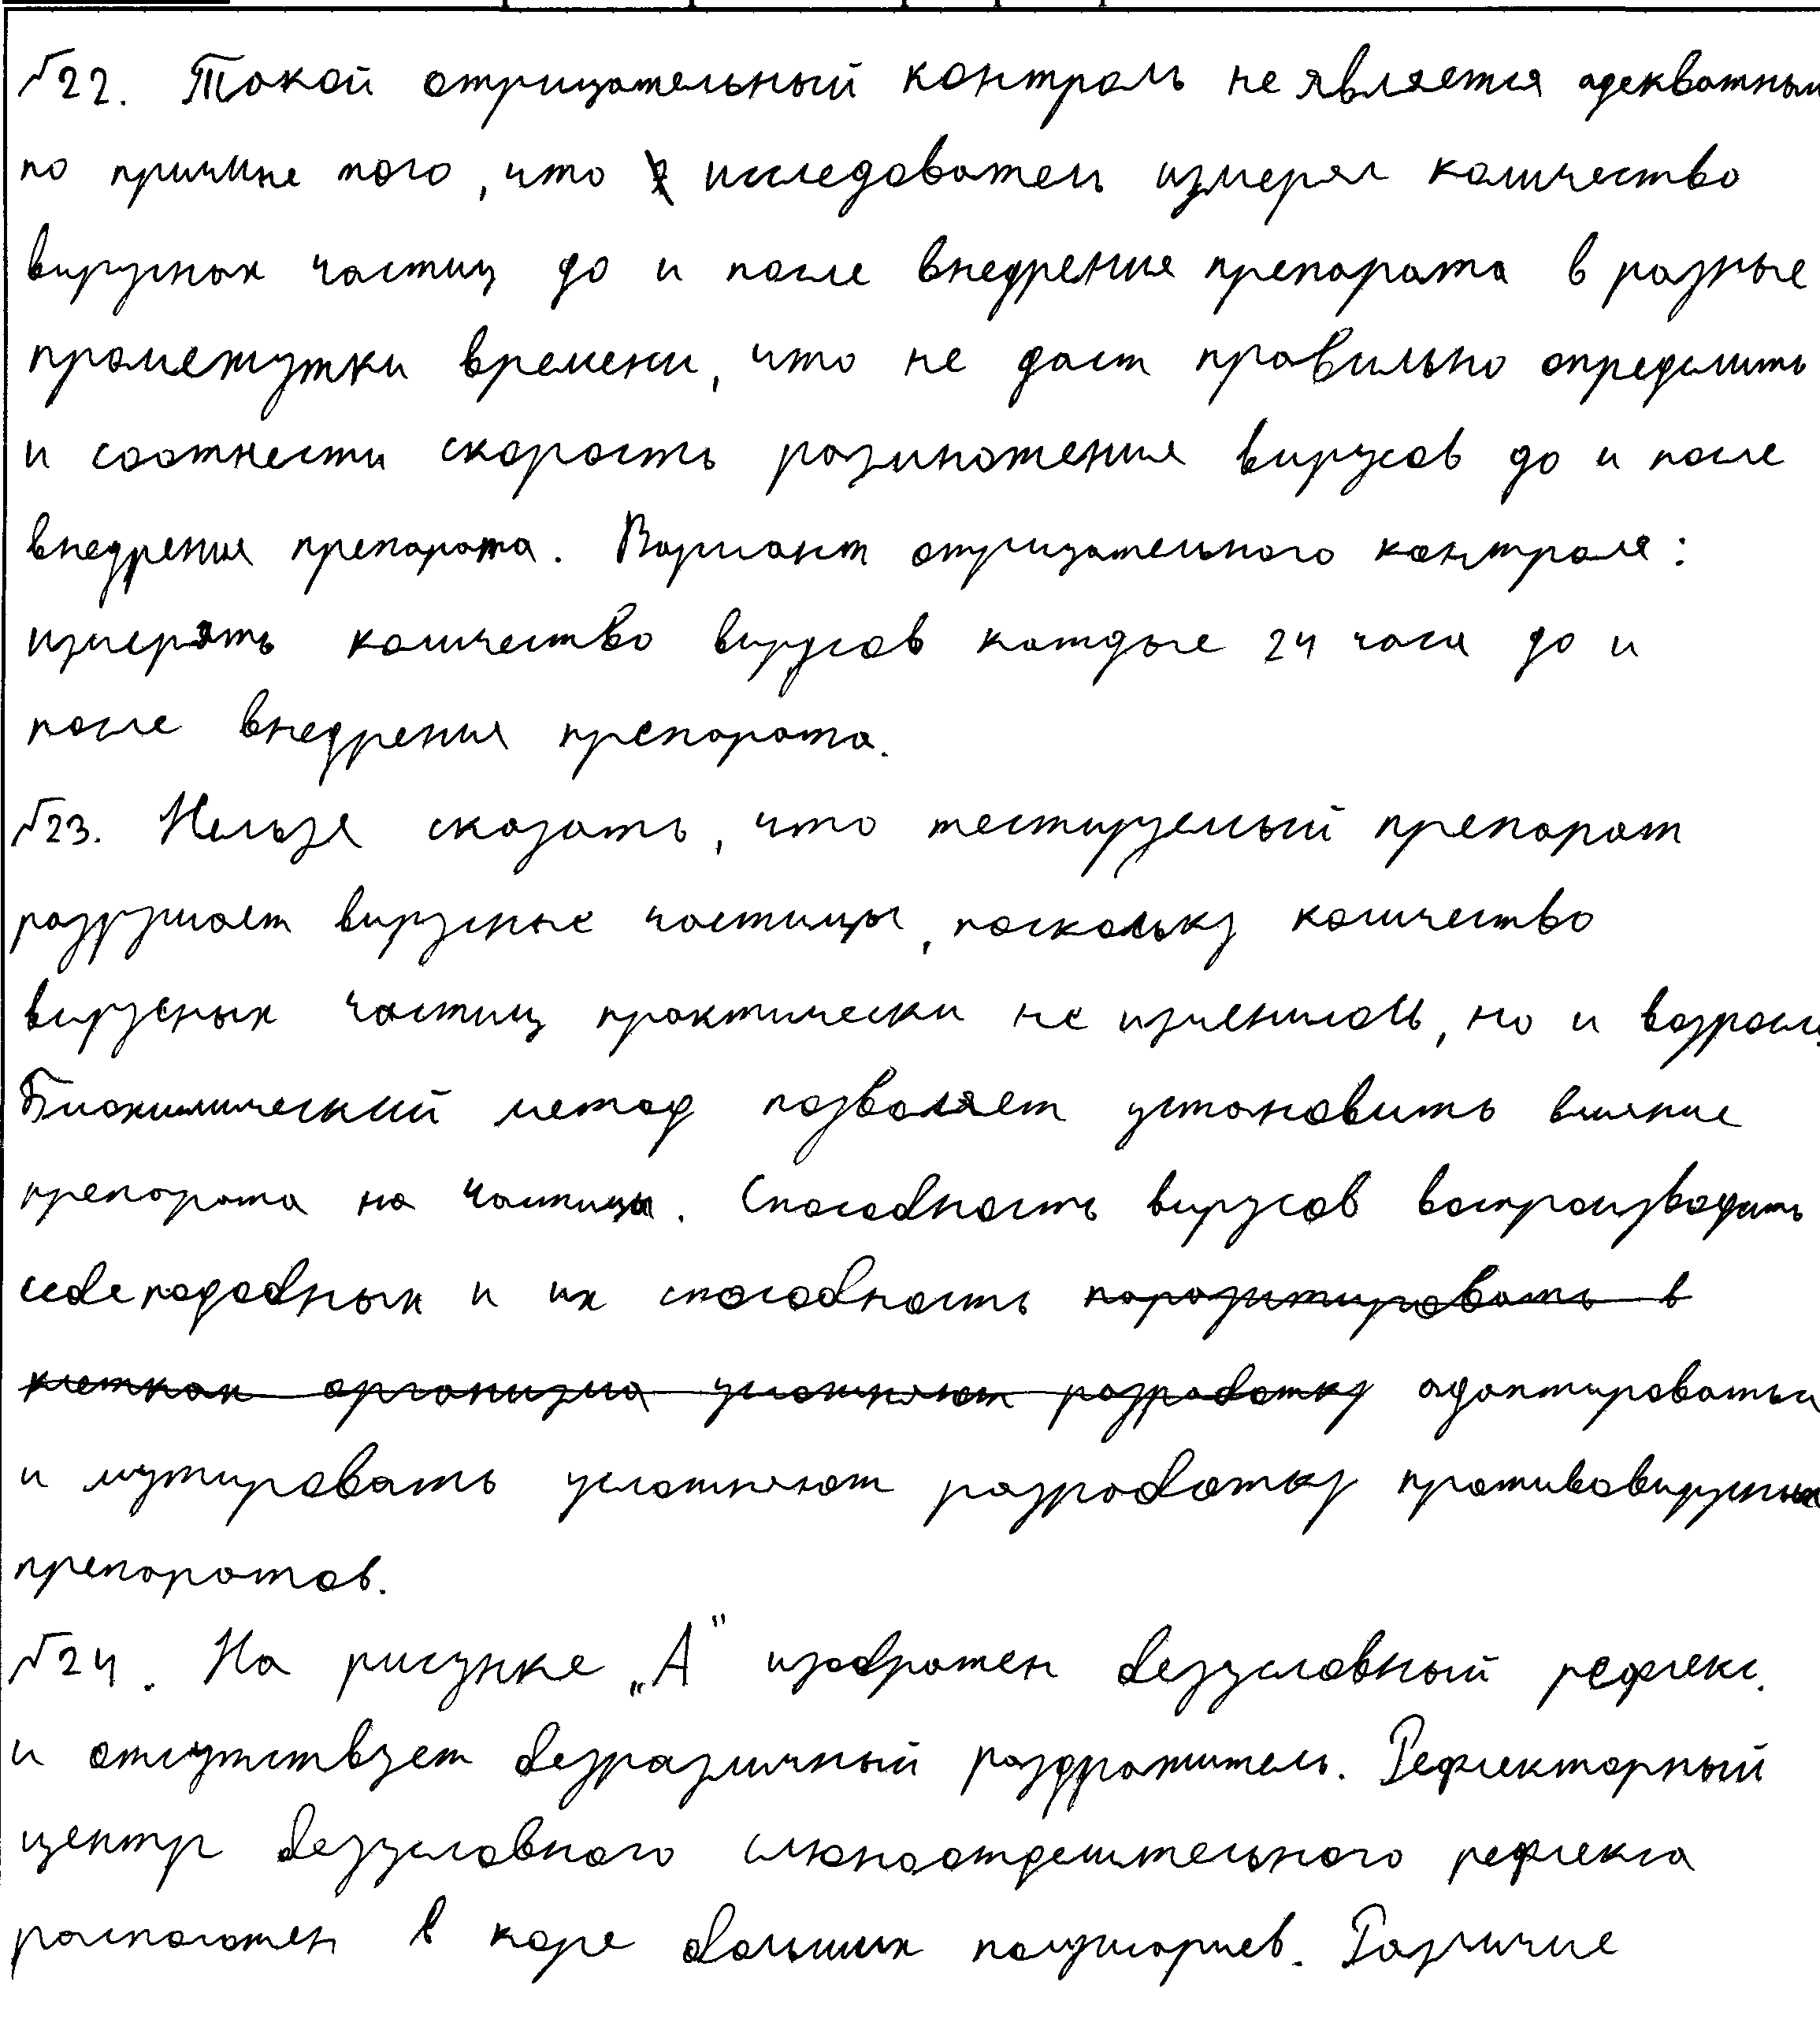 №22. Такой отрицательный контроль не является адекватным
по причине того, что исследователь измерял количество
вирусных частиц до и после внедрения препарата в разные
промежутки времени, что не даст правильно определить
и соотнести скорость размножения вирусов до и после
внедрения препарата. Вариант отрицательного контроля:
измерять количество вирусов каждые 24 часа до и
после внедрения препарата.
№23. Нельзя сказать, что тестируемый препарат
разрушает вирусные частицы, поскольку количество
вирусных частиц практически не изменилось, но и возросло.
Биохимический метод позволяет установить влияние
препарата на частицы. Способность вирусов воспроизводить
себеподобных и их способность паразитировать в
клетках организма усложняют разработку адаптироваться
и мутировать усложняют разработку противовирусных
препаратов.
№24. На рисунке „А" изображен безусловный рефлекс.
и отсутствует безразличный раздражитель. Рефлекторный
центр безусловного слюноотделительного рефлекса
расположен в коре больших полушариев. Различие